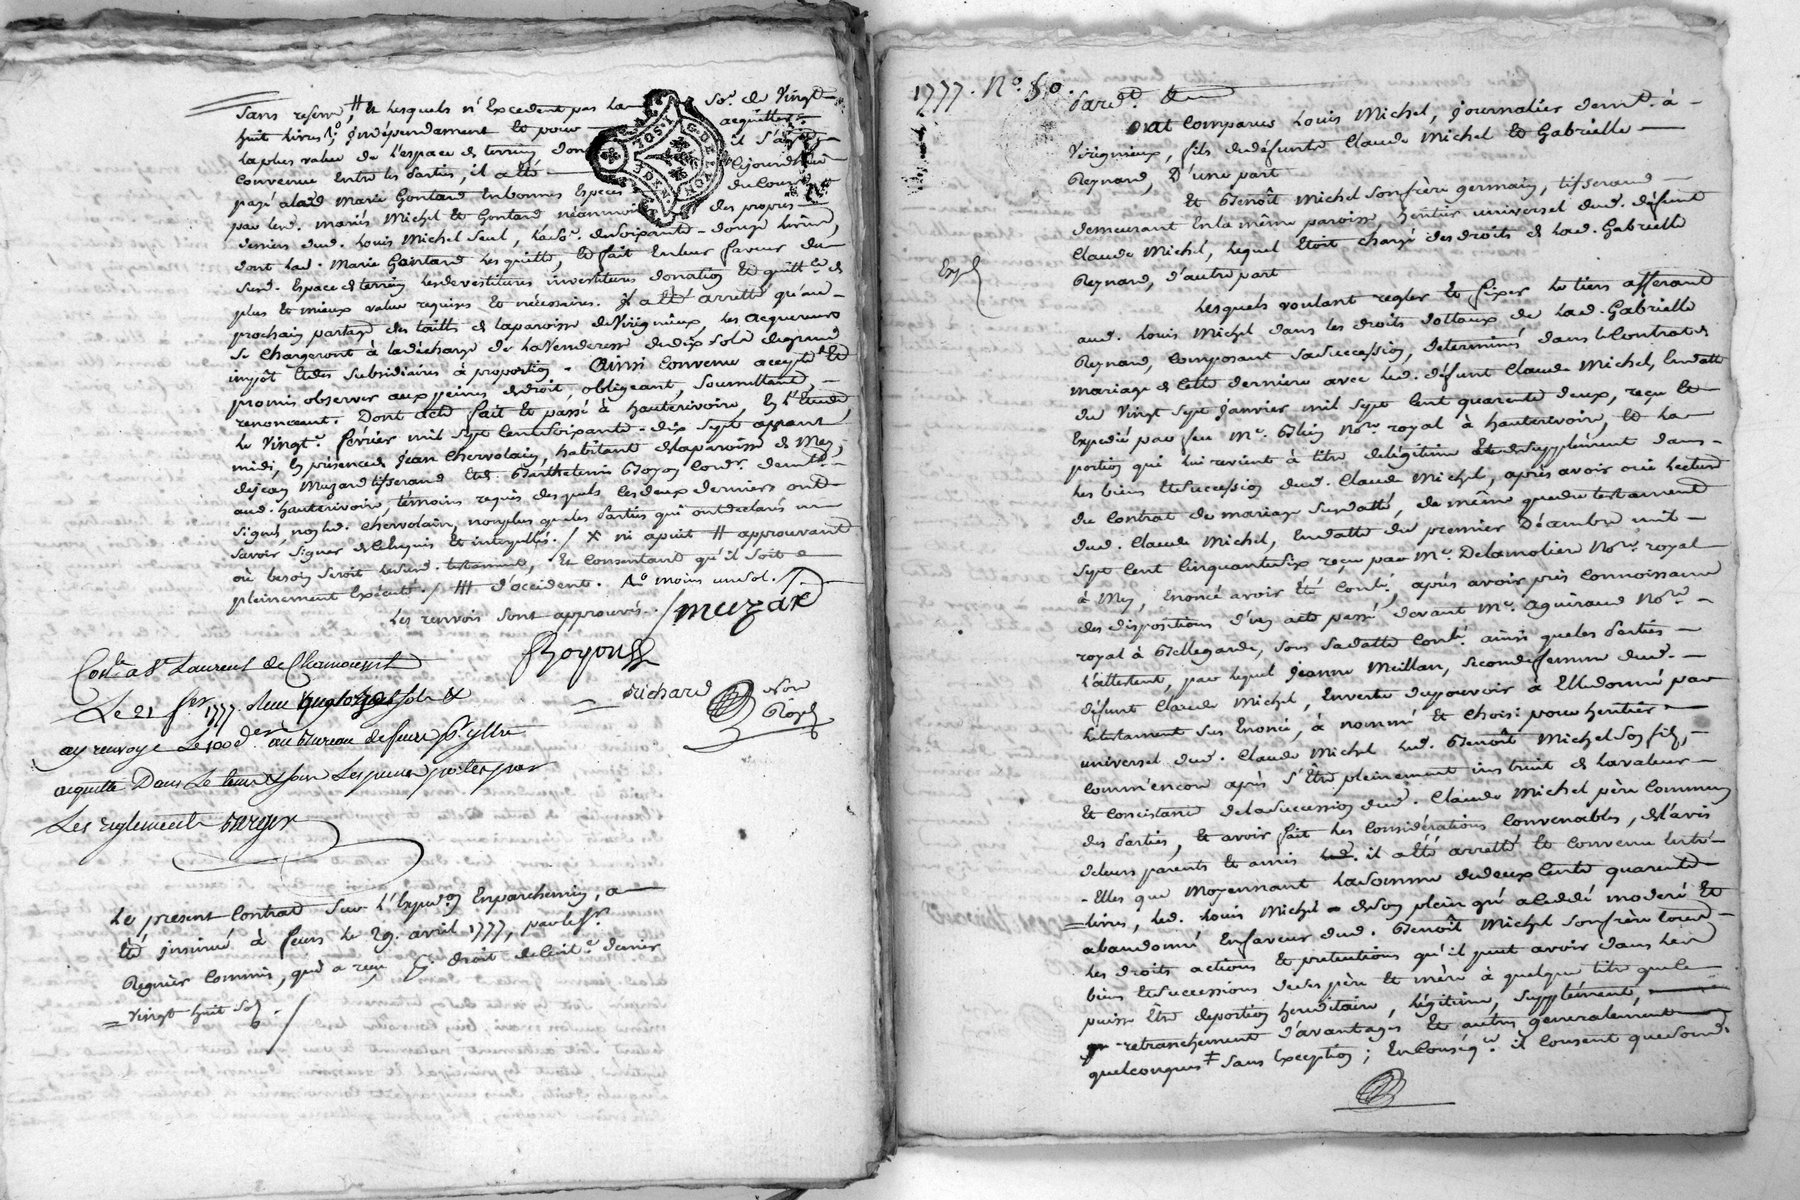 sans reserve, # & lesquels n'Excedent pas la so.e de Vingt
huit livres, Independament Et pour acquitter
la plus value de l'espace de terrein dont il s'agit,
Convenue Entre les parties, il a été cejourd'hui
payé a lad Marie Gontard En bonnes Especes du Cours
par led. mariés Michel Et Gontard néanmoins des propres
deniers dud. Louis Michel seul, la so.e de soixante-douze livres,
dont lad. Marie Gontard les quitte, Et fait En leur faveur du
susd. Espace de terrein les devestitures investitures donation Et quitt.ce de
plus Et mieux value requises Et nécessaires. Il a été arretté qu'au
prochain partage des tailles de la paroisse de Virignieux, les acquereurs
se Chargeront à la décharge de la Venderesse de dix sols de grand
impôt Et des subsidiaires à proportion. Ainsi Convenu accepté Et
promis observer aux peines de droit, obligeant, soumettant,
renonceant. Dont acte fait Et passé à hauterivoire, En l'Etude,
le vingt. février mil sept Cent soixante-dix sept avant
midi, En présence de Jean Chervolain, habitant de la paroisse de Mey,
de jean Muzard tisserand Et de Barthelemi Boyon Cord.r dem.ts
aud. hauterivoire, témoins requis desquels les deux derniers ont
signé, non led. Chervolain, non plus que les parties qui ont déclaré ne
savoir signer de Ce Enquis Et interpellés. / X ni apuit # approuvant
où besoin seroit le susd. testament, Et Consentant qu'il soit
pleinement Exécuté. / ## d'occident. Ao moins un sol.
Les renvois sont approuvés. / muzard
Boyon
Richard Not.re Royal
Con.lé a St Laurent de Chamousset
Le 21 fer 1777. Reçu quatorze sols &
ay renvoyé le 100e den. au Bureau de feurs pr. être
acquitté Dans Le tems & sous Les peines portées par
Les reglements Barjon
Le present Contrat sur l'Exped.on En parchemin, a
Eté insinué à feurs le 29. avril 1777, par le Sr.
Regnier Commis, qui a reçu pr. droit de Cent.e denier
= vingt huit sols. /
1777. No. 50.
Pard.t &
Ont Comparu Louis Michel, journalier dem.t à
Virignieux, fils de défunts Claude Michel Et Gabrielle
Reynard, D'une part
Et Benoît Michel son frère germain, tisserand
demeurant En la même paroisse héritier universel dud. défunt
Claude Michel, lequel Etoit chargé des droits de lad. Gabrielle
Reynard, d'autre part
Exp.é
Lesquels voulant regler Et fixer le tiers afferant
aud. Louis Michel dans les droits dottaux de lad. Gabrielle
Reynard, Composant sa succession, déterminés dans le Contrat de
mariage de Cette derniere avec led. défunt Claude Michel, En datte
du vingt sept janvier mil sept Cent quarante deux, reçu Et
Expedié par feu Me. Blein No.re royal à hauterivoire, Et la
portion qui lui revient à titre de légitime Et de supplément dans
les biens Et succession dud. Claude Michel, après avoir oui lecture
du Contrat de mariage susdatté, de même que du testament
dud. Claude Michel, En datte du premier Décembre mil
sept Cent Cinquante six reçu par Me. Delamolier No.re royal
à Mey, Enoncé avoir Eté Con.lé, après avoir pris Connoissance
des dispositions d'un acte passé devant Me. Aguiraud No.re
royal à Bellegarde, sous sa datte Con.lé ainsi que les parties
l'attestent, par lequel Jeanne Meillan, seconde femme dud.
défunt Claude Michel, En vertu du pouvoir à Elle donné par
le testament sus Enoncé, à nommé Et choisi pour heritier
universel dud. Claude Michel led. Benoît Michel son fils,
comm'encor après s'être pleinement instruit de la valeur
Et Concistance de la succession dud. Claude Michel père Commun
des parties, Et avoir fait les Considérations Convenables, de l'avis
de leurs parents Et amis led. il a été arretté Et Convenu Entr'
-Elles que Moyennant la somme de deux Cents quarante
livres, led. Louis Michel de son plein gré a Cédé moderé Et
abandonné En faveur dud. Benoît Michel son frère tous
les droits actions Et prétentions qu'il peut avoir dans les
biens Et successions de ses père Et mère à quelque titre que Ce
puisse Etre de portion hereditaire, légitime, supplément,
retranchement d'avantages Et autres generalement
quelconques ‡ sans Exception; En Conséq.ce il Consent que son d.